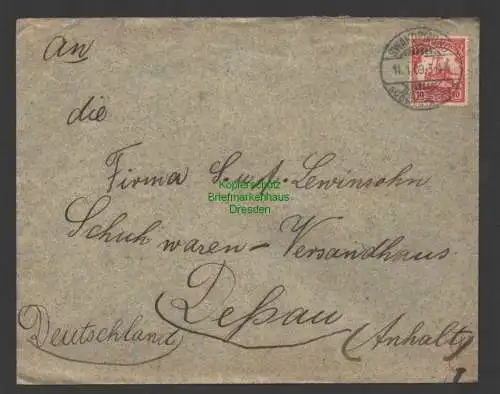 An
die
Firma S. u. J. Lewinsohn
Schuhwaren-Versandhaus
Deßau
(Anhalt)
Deutschland
Kopierschutz
Briefmarkenhaus
Dresden
10 10